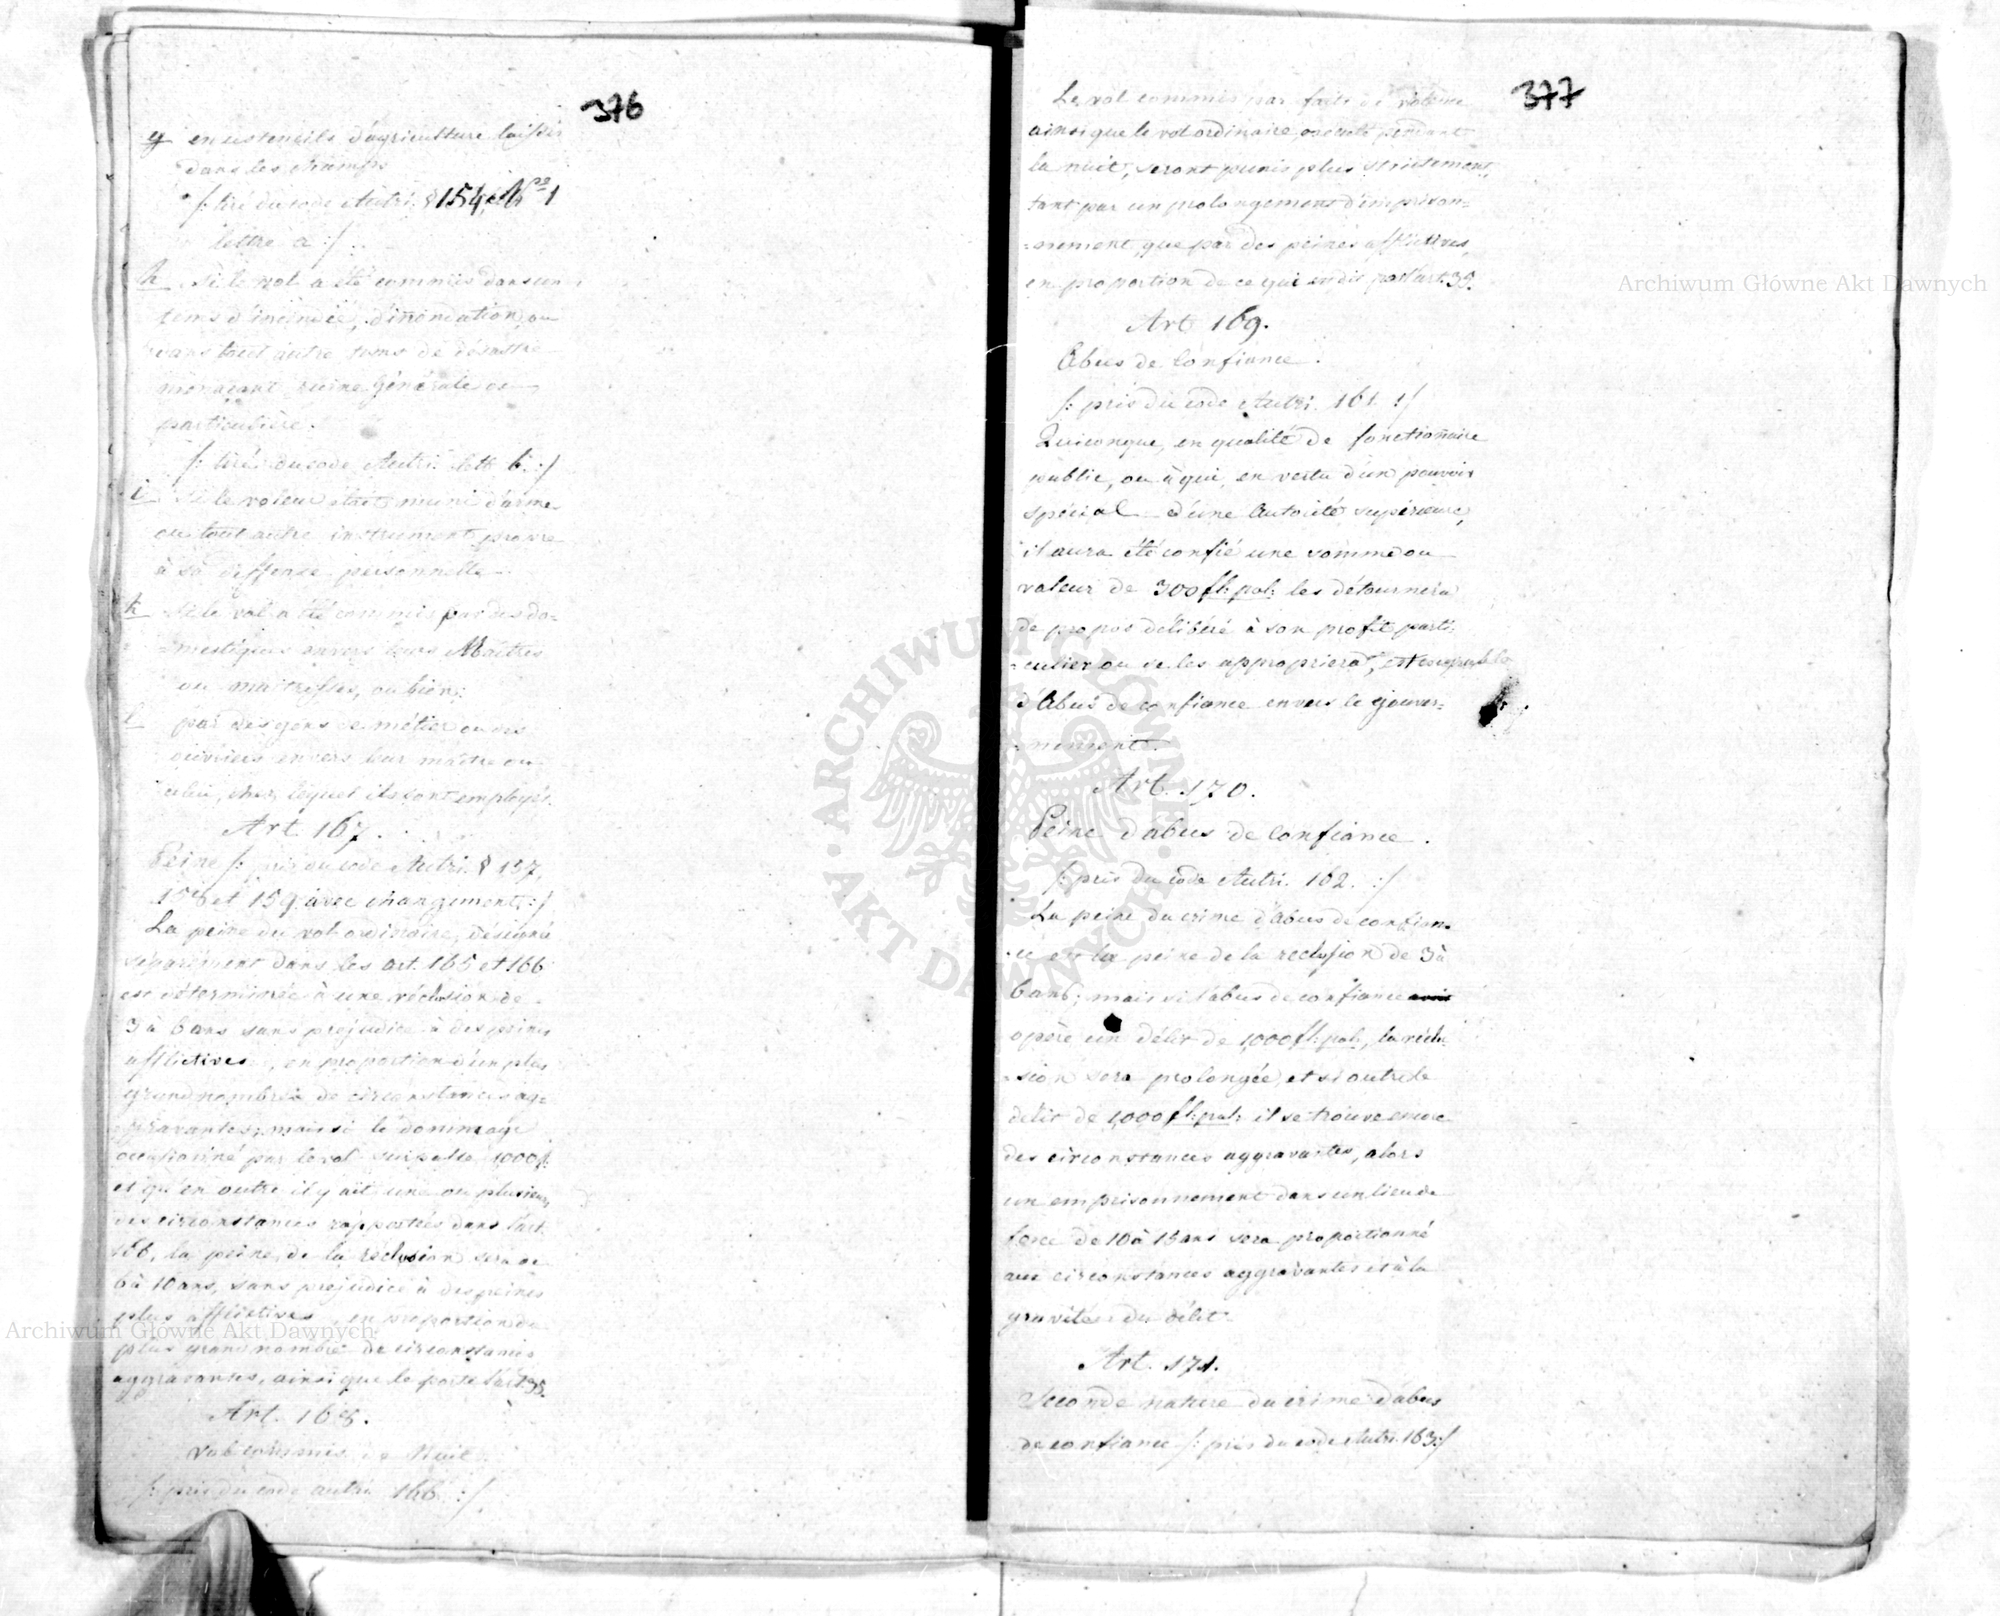 376
g en ustencils d'agriculture laissés
dans les champs
/: tiré du code Autri. § 154 et No 1
lettre a :/
h si le vol a été commis dans un
tems d'incindie, d'inondation, ou
dans tout autre tems de désastre
menaçant ruine générale ou
particulière.
/: tiré du code Autri. lett. b. :/
i si le voleur était muni d'arme
ou tout autre instrument propre
à sa deffense personnelle
k si le vol a été commis par des do=
=mestiques envers leurs Maîtres
ou maitresses, ou bien;
l par des gens de métier ou des
ouvriers envers leur maître ou
celui, chez lequel ils sont employés.
Art. 167.
Peine /: pris du code Autri. § 157,
158 et 159 avec changement :/
La peine du vol ordinaire, désigné
séparément dans les art. 165 et 166
est déterminée à une réclusion de
3 à 6 ans sans prejudice à des peines
afflictives, en proportion d'un plus
grand nombre de circonstances ag=
=gravantes; mais si le dommage
occasionné par le vol surpasse 1000 f.
et qu'en outre il y ait une ou plusieurs
des circonstances rapportées dans l'art.
166, la peine de la réclusion sera de
6 à 10 ans, sans prejudice à des peines
plus afflictives en proportion du
plus grand nombre de circonstances
aggravantes, ainsi que le porte l'art. 35.
Art. 168.
Vol commis de Nuit
/: pris du code autri. 166 :/
377
Le vol commis par faits de violence
ainsi que le vol ordinaire, exécuté pendant
la nuit, seront punis plus strictement,
tant par un prolongement d'imprison=
=nement, que par des peines afflictives,
en proportion de ce qui en dit par l'art. 35.
Art 169.
Abus de Confiance.
/: pris du code Autri. 161. :/
Quiconque, en qualité de fonctionnaire
public, ou à qui, en vertu d'un pouvoir
spécial d'une Autorité supérieure,
il aura été confié une somme ou
valeur de 300 fl: pol: les détournera
de propos délibéré à son profit parti=
=culier ou se les appropriera, est coupable
d'Abus de confiance envers le gouver=
=nement.
Art. 170.
Peine d'abus de Confiance.
/: pris du code Autri. 162. :/
La peine du crime d'Abus de confian=
=ce est la peine de la reclusion de 3 à
6 ans; mais si l'abus de confiance
opère un délit de 1,000 fl: pol:, la réclu=
=sion sera prolongée, et si outre le
delit de 1,000 fl: pol: il se trouve encore
des circonstances aggravantes, alors
un emprisonnement dans un lieu de
force de 10 à 15 ans sera proportionné
aux circonstances aggravantes et à la
gravités du délit.
Art. 171.
Seconde nature du crime d'abus
de confiance /: pris du code Autri. 163 :/
Archiwum Główne Akt Dawnych
Archiwum Główne Akt Dawnych
ARCHIWUM GŁÓWNE · AKT DAWNYCH ·